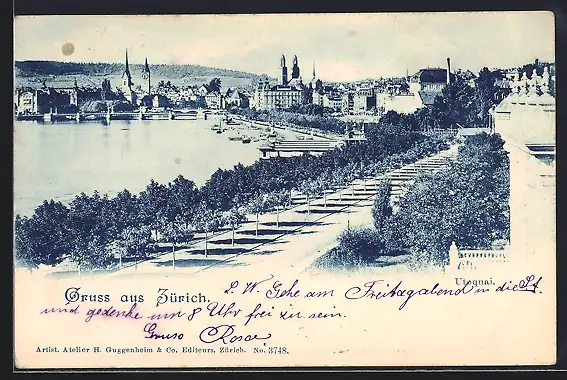 Utoquai.
Gruss aus Zürich.
L. W. Gehe am Freitagabend in die St
und gedenke um 8 Uhr frei zu sein.
Gruss Rosa
Artist. Atelier H. Guggenheim & Co. Editeurs, Zürich. No. 3748.